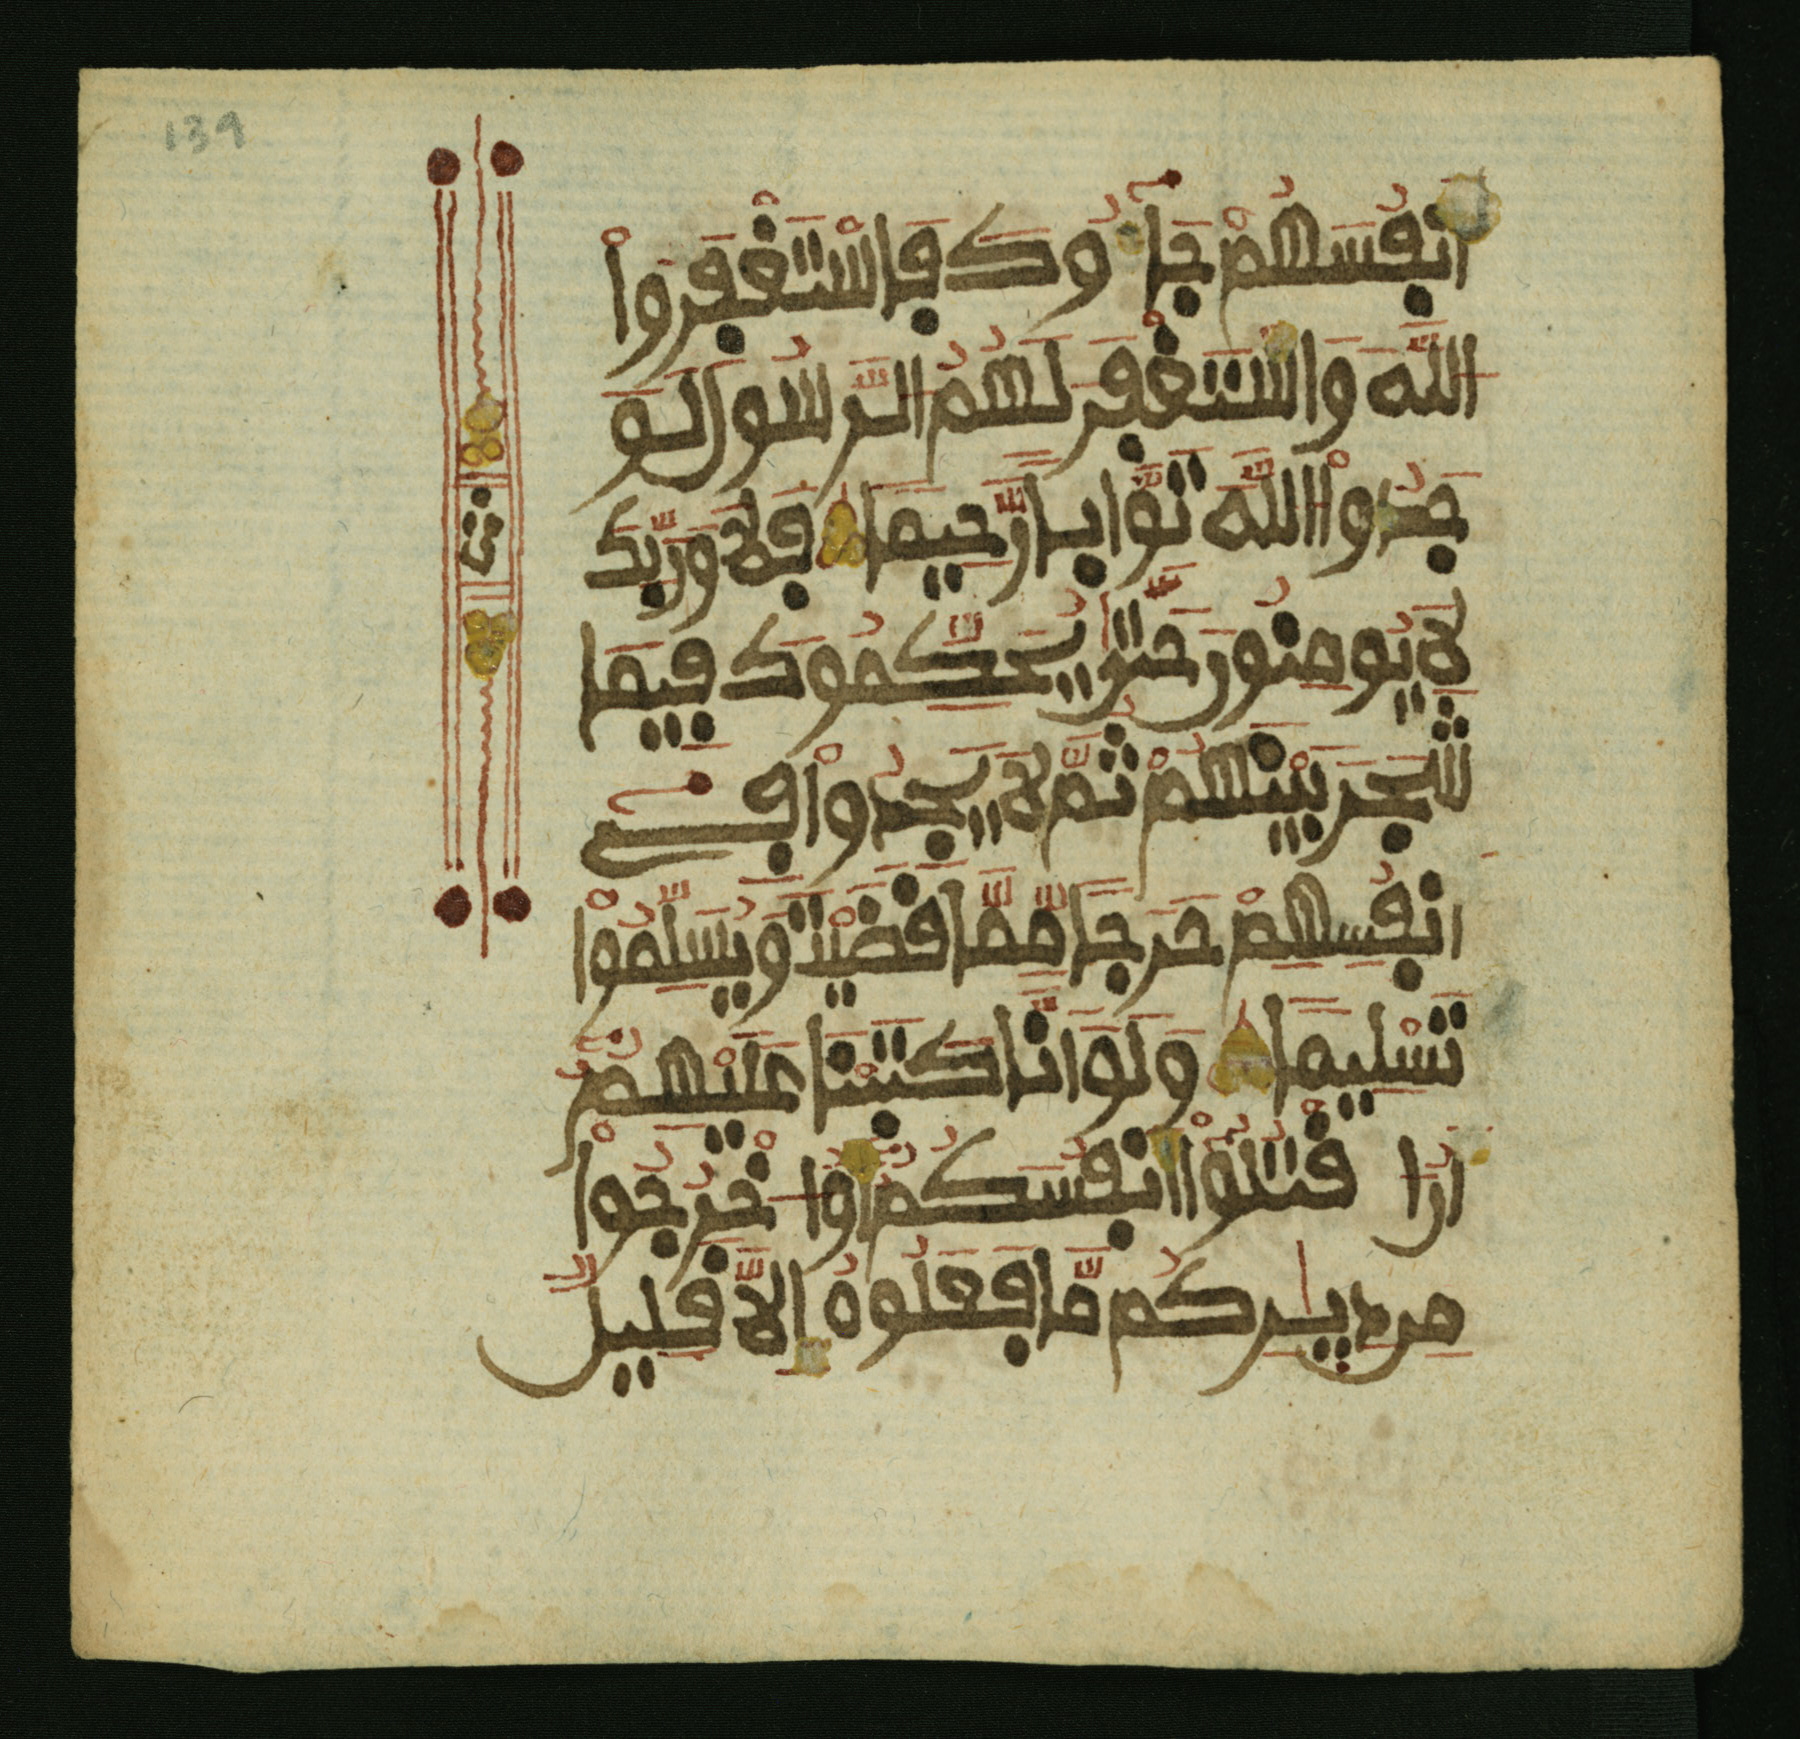 139
انفسهم جاوك فاستغفروا
الله واستغفر لهم الرسول لو
جدوا الله توابا رحيما فلا وربك
لا يومنون حتى يحكموك فيما
شجر بينهم ثم لا يجدوا في
انفسهم حرجا مما قضيت ويسلموا
تسليما ولو انا كتبنا عليهم
ان ا قتلوا انفسكم اوا خرجوا
من ديركم ما فعلوه الا قليل